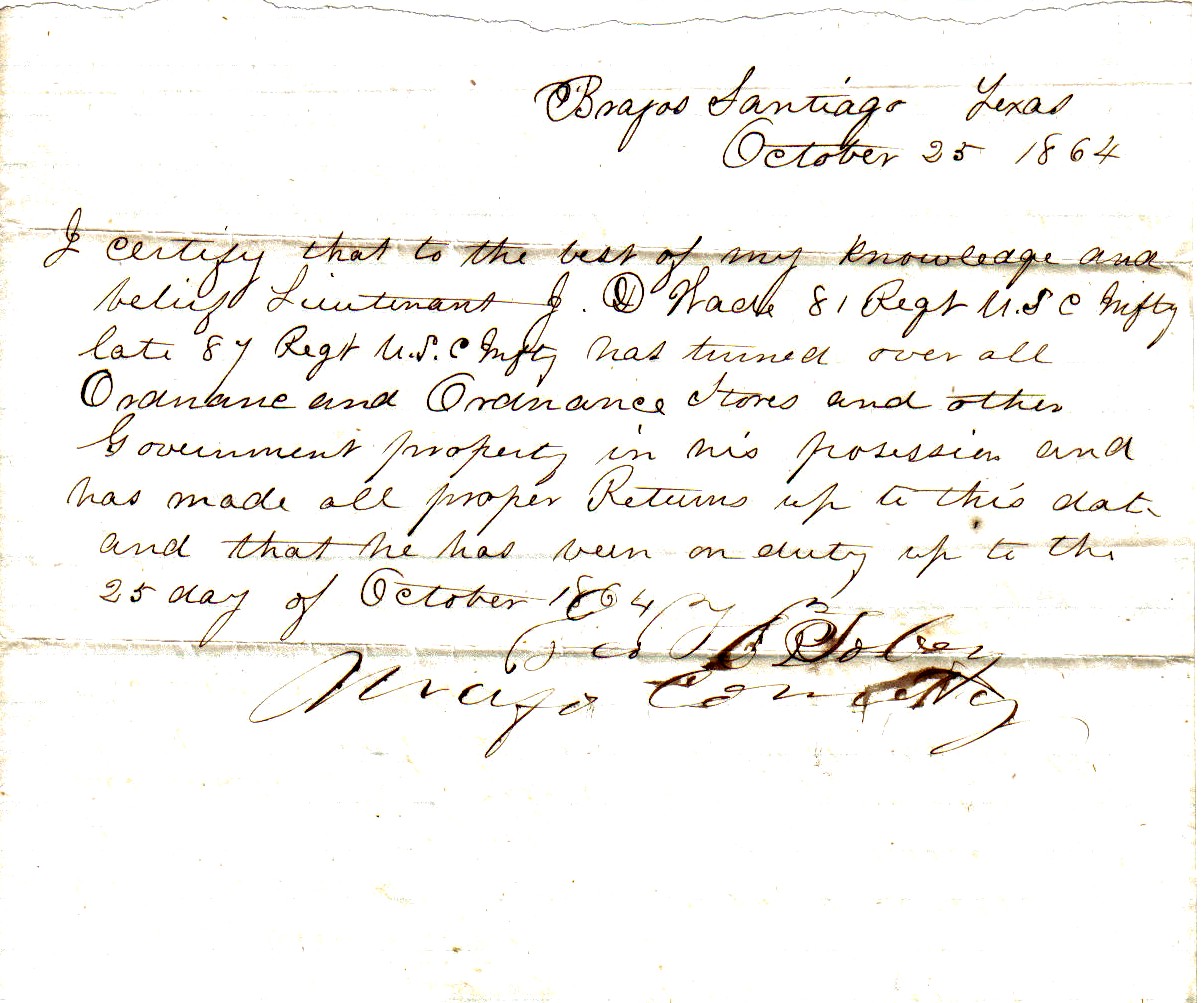 Brazos Santiago Texas
October 25 1864
I certify that to the best of my knowledge and
belief Lieutenant J. D Wade 81 Regt U.S C Infty
late 87 Regt U.S.C Infty has turned over all
Ordnanc and Ordnance Stores and other
Government property in his posession and
has made all proper Returns up to this date
and that he has been on duty up to the
25 day of October 1864
Geo
Major Comdg